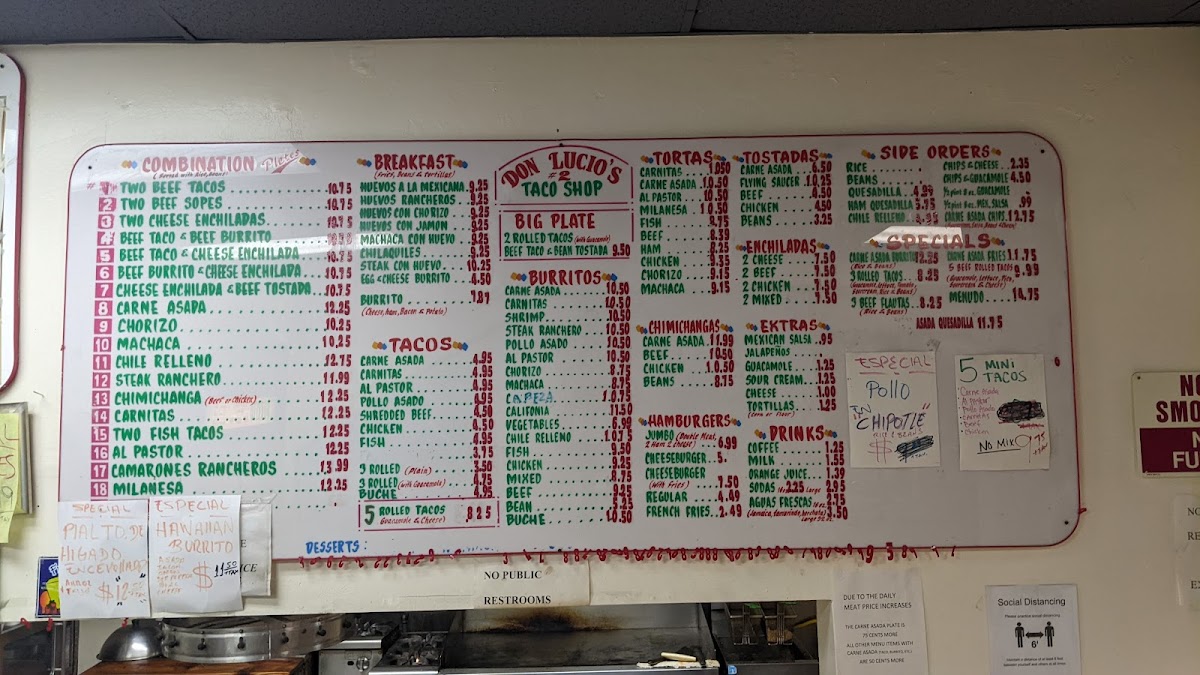 COMBINATION Plates
(Served with Rice, Beans)
#1 TWO BEEF TACOS 10.75
2 TWO BEEF SOPES 10.75
3 TWO CHEESE ENCHILADAS 10.75
4 BEEF TACO & BEEF BURRITO
5 BEEF TACO & CHEESE ENCHILADA 10.75
6 BEEF BURRITO & CHEESE ENCHILADA 10.75
7 CHEESE ENCHILADA & BEEF TOSTADA 10.75
8 CARNE ASADA 12.25
9 CHORIZO 10.25
10 MACHACA 10.25
11 CHILE RELLENO 12.75
12 STEAK RANCHERO 11.99
13 CHIMICHANGA (Beef or Chicken) 12.25
14 CARNITAS 12.25
15 TWO FISH TACOS 12.25
16 AL PASTOR 12.25
17 CAMARONES RANCHEROS 13.99
18 MILANESA 12.25
BREAKFAST
(Rice, Beans & Tortillas)
HUEVOS A LA MEXICANA 9.25
HUEVOS RANCHEROS 9.25
HUEVOS CON CHORIZO 9.25
HUEVOS CON JAMON 9.25
MACHACA CON HUEVO 9.25
CHILAQUILES 9.25
STEAK CON HUEVO 10.25
EGG & CHEESE BURRITO 4.50
BURRITO 7.87
(Cheese, ham, Bacon & Potato)
TACOS
CARNE ASADA 4.95
CARNITAS 4.95
AL PASTOR 4.95
POLLO ASADO 4.95
SHREDDED BEEF 4.50
CHICKEN 4.50
FISH 4.95
3 ROLLED (Plain) 3.75
3 ROLLED (with Guacamole) 4.50
BUCHE 4.95
5 ROLLED TACOS 8.25
(Guacamole & Cheese)
DON LUCIO'S
#2
TACO SHOP
BIG PLATE
2 ROLLED TACOS (with Guacamole)
BEEF TACO & BEAN TOSTADA 9.50
BURRITOS
CARNE ASADA 10.50
CARNITAS 10.50
SHRIMP 10.50
STEAK RANCHERO 10.50
POLLO ASADO 10.50
AL PASTOR 10.50
CHORIZO 8.75
MACHACA 8.75
CABEZA 10.75
CALIFONIA 11.50
VEGETABLES 6.99
CHILE RELLENO 10.75
FISH 9.50
CHICKEN 9.25
MIXED 8.75
BEEF 9.25
BEAN
BUCHE 10.50
TORTAS
CARNITAS 10.50
CARNE ASADA 10.50
AL PASTOR 10.50
MILANESA 10.50
FISH 9.75
BEEF 8.39
HAM 9.25
CHICKEN 9.35
CHORIZO 9.15
MACHACA 9.15
CHIMICHANGAS
CARNE ASADA 11.99
BEEF 10.50
CHICKEN 10.50
BEANS 8.75
HAMBURGERS
JUMBO (Double Meat, 2 Ham & Cheese) 6.99
CHEESEBURGER 5.
CHEESEBURGER
(With Fries) 7.50
REGULAR 4.49
FRENCH FRIES 2.49
TOSTADAS
CARNE ASADA 6.50
FLYING SAUCER 10.25
BEEF 4.50
CHICKEN 4.50
BEANS 3.25
ENCHILADAS
2 CHEESE 7.50
2 BEEF 7.50
2 CHICKEN 7.50
2 MIXED 7.50
EXTRAS
MEXICAN SALSA .95
JALAPEÑOS
GUACAMOLE 1.25
SOUR CREAM 1.25
CHEESE 1.00
TORTILLAS 1.25
(Corn or Flour)
DRINKS
COFFEE 1.25
MILK
ORANGE JUICE
SODAS 2.25 Large
AGUAS FRESCAS
(Jamaica, tamarindo, horchata) Large 3.50
SIDE ORDERS
RICE
BEANS
QUESADILLA 4.99
HAM QUESADILLA 3.75
CHILE RELLENO
CHIPS & CHEESE 2.35
CHIPS & GUACAMOLE 4.50
½ pint 8 oz. GUACAMOLE
½ pint 8 oz. MEX. SALSA .99
CARNE ASADA CHIPS 12.75
SPECIALS
CARNE ASADA BURRITO
(Rice & Beans)
3 ROLLED TACOS 8.25
3 BEEF FLAUTAS 8.25
(Rice & Beans)
CARNE ASADA FRIES 11.75
5 BEEF ROLLED TACOS 9.99
MENUDO 14.75
ASADA QUESADILLA 11.75
ESPECIAL
POLLO
"IN CHIPOTLE"
RICE & BEANS
$
5 MINI
TACOS
Carne Asada
Al Pastor
Pollo Asado
Carnitas
Beef
Chicken
NO MIX
DESSERTS:
SPECIAL
HIGADO
ENCEBOLLADO
ESPECIAL
HAWAIIAN
BURRITO
$11.50
+TAX
NO PUBLIC
RESTROOMS
DUE TO THE DAILY
MEAT PRICE INCREASES
THE CARNE ASADA PLATE IS
75 CENTS MORE
ALL OTHER MENU ITEMS WITH
CARNE ASADA (TACO, BURRITO, ETC.)
ARE 50 CENTS MORE
Social Distancing
Please practice social distancing
6'
NO
SMO
FU